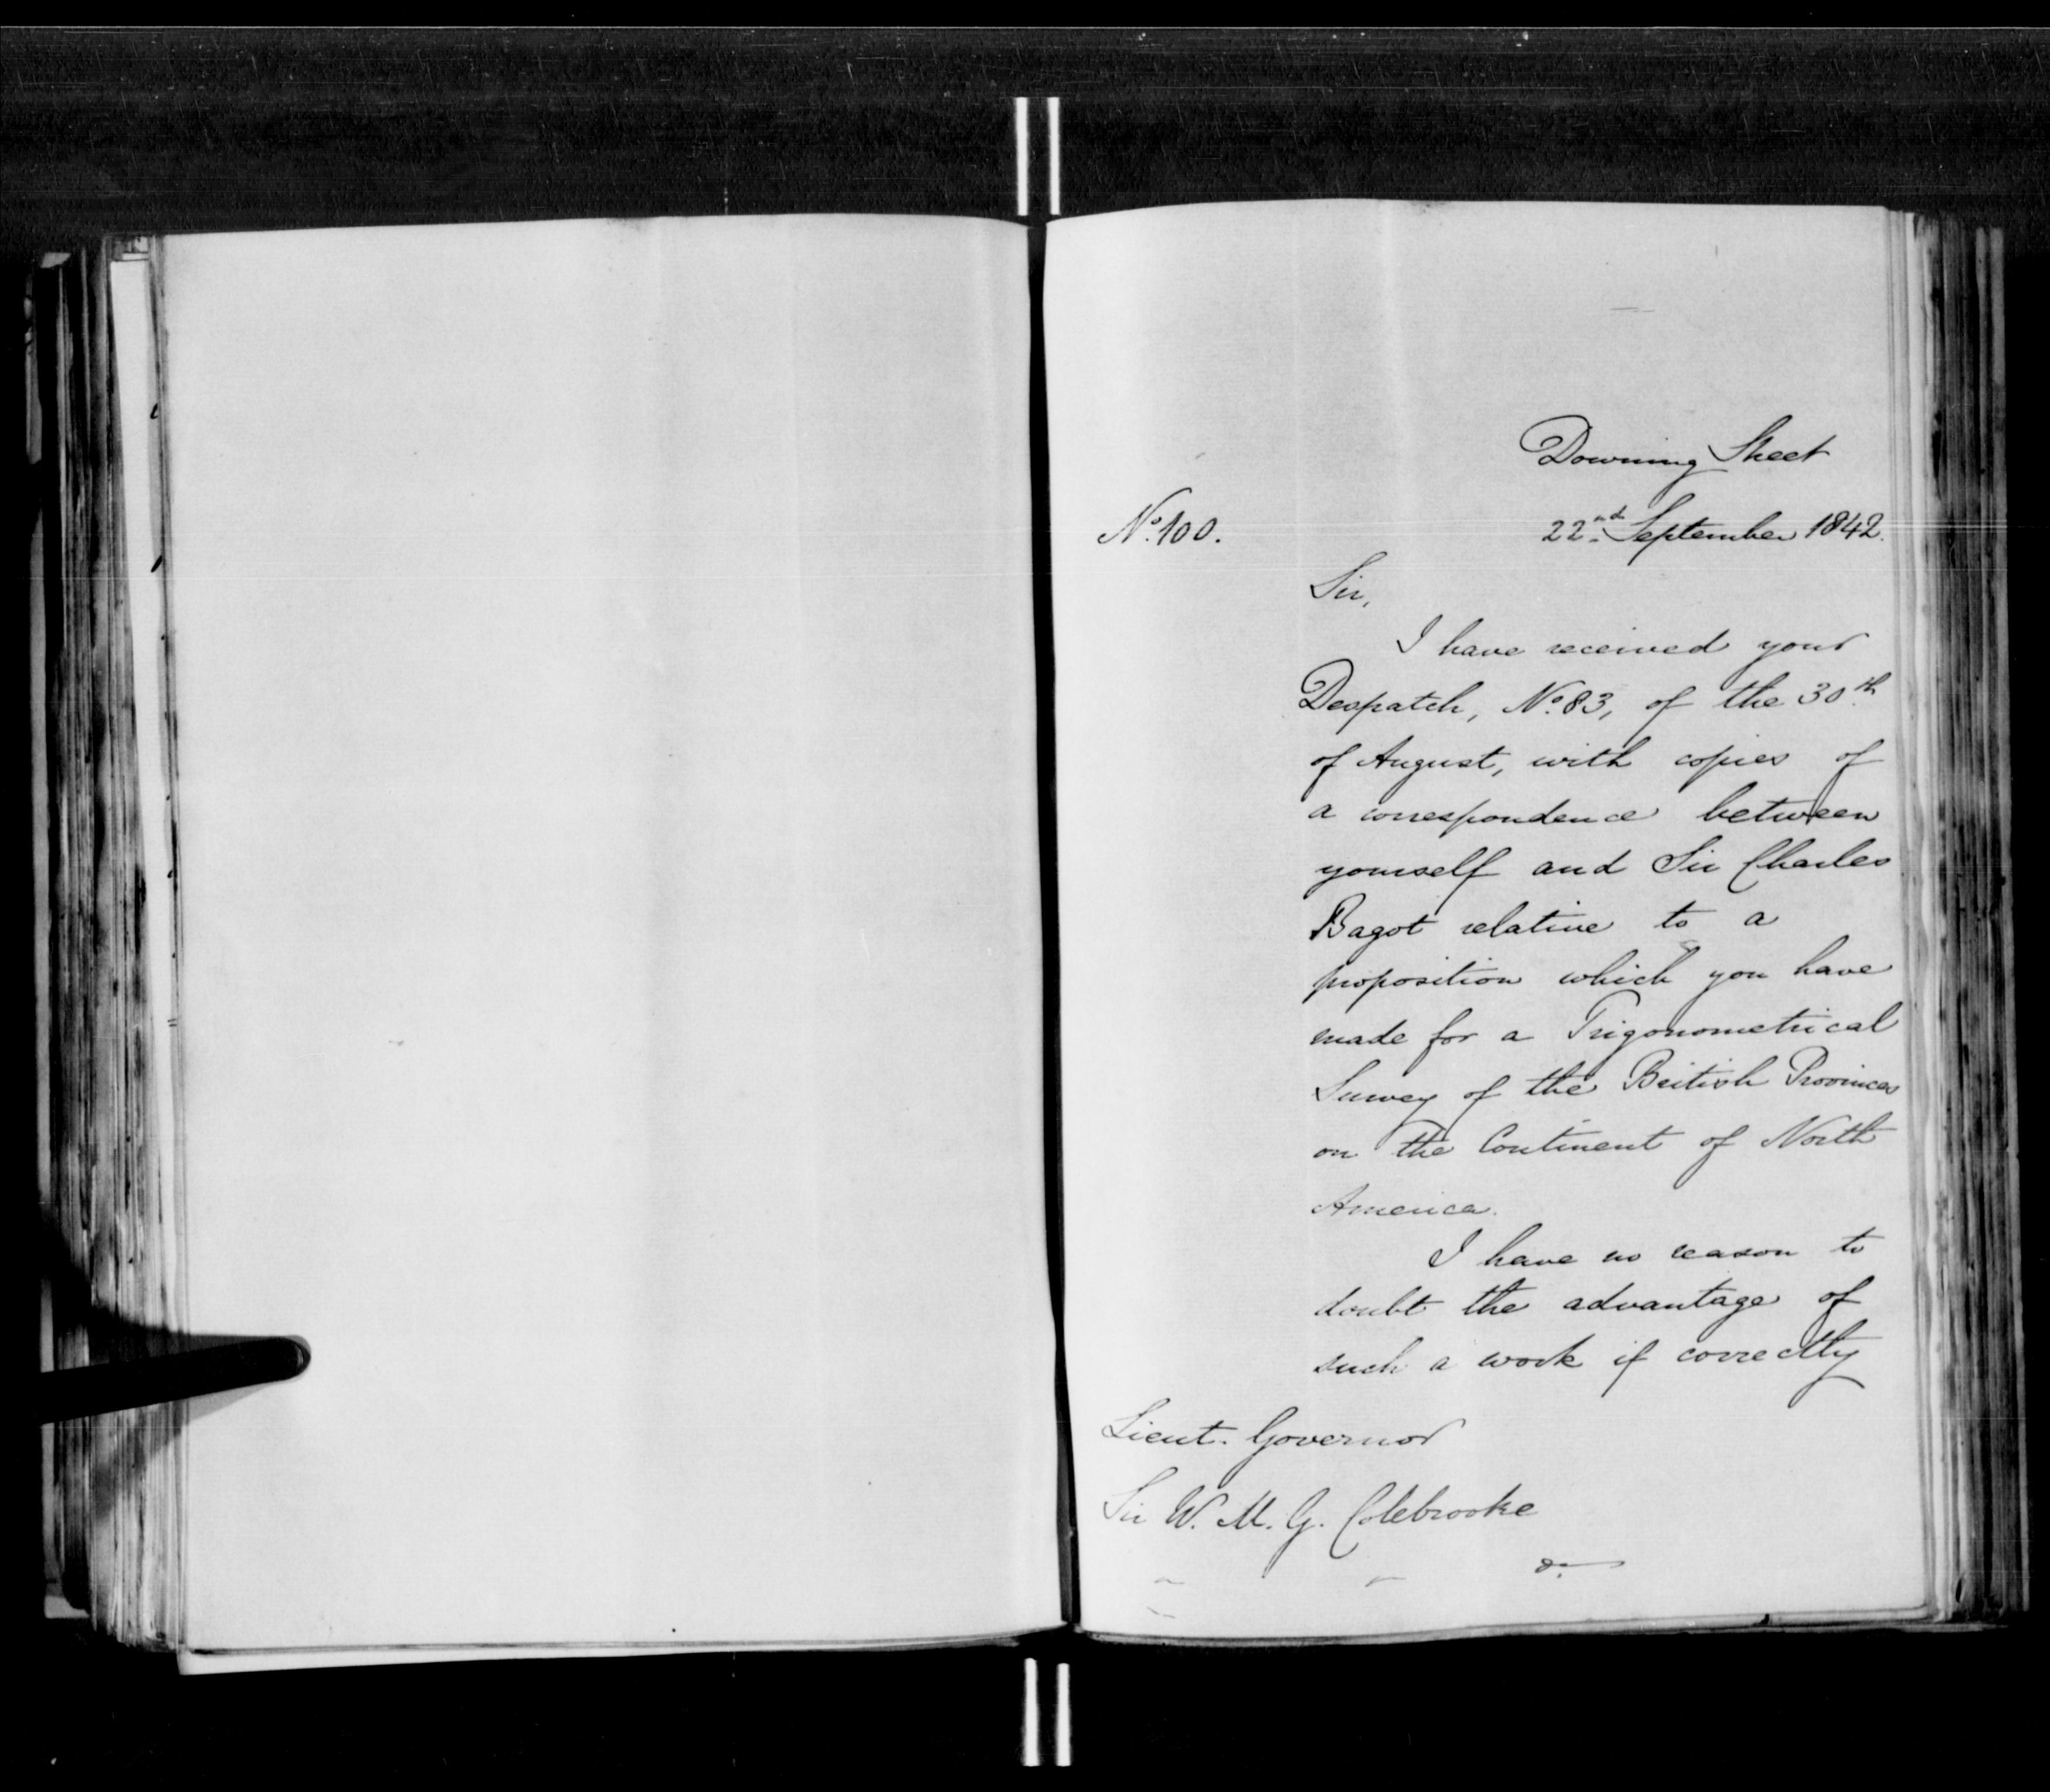 Downing Street
No. 100.
22nd September 1842.
Sir,
I have received your
Despatch, No. 83, of the 30th
of August, with copies of
a correspondence between
yourself and Sir Charles
Bagot relative to a
proposition which you have
made for a Trigonometrical
Survey of the British Provinces
on the Continent of North
America.
I have no reason to
doubt the advantage of
such a work if correctly
Lieut. Governor
Sir W. M. G. Colebrooke